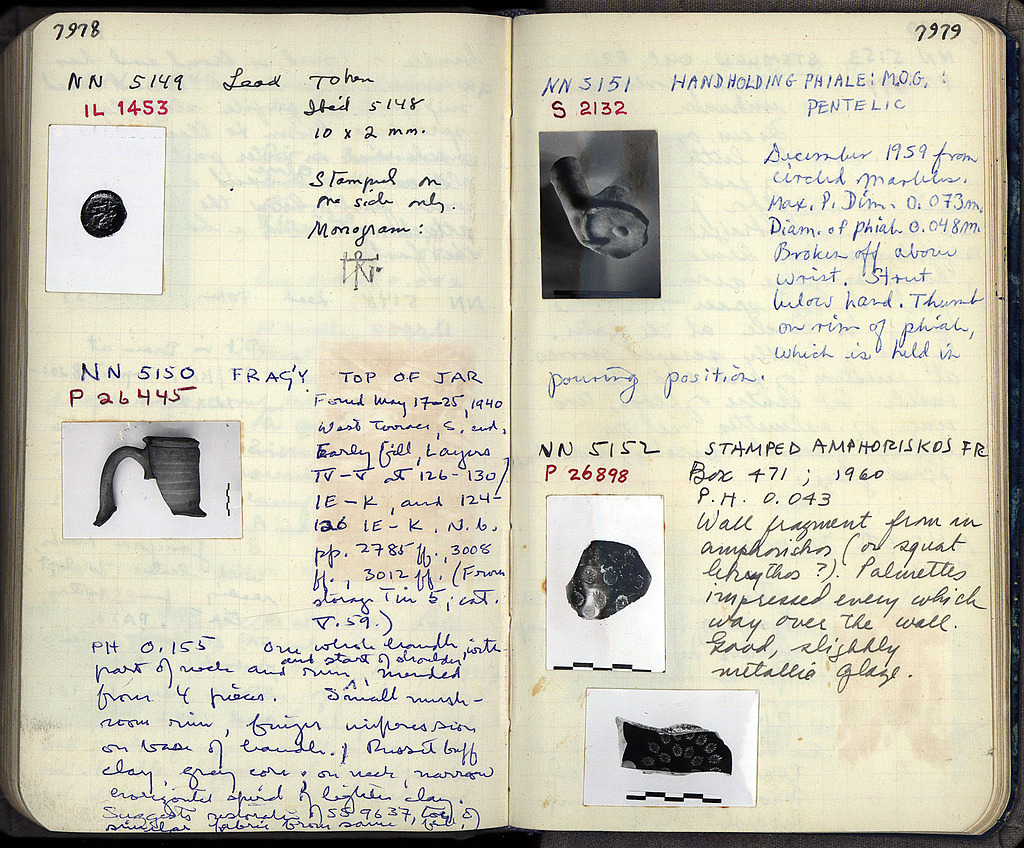 7978
NN 5149 Lead Token
IL 1453
Ibid 5148
10 x 2 mm.
Stamped on
one side only.
Monogram:
NN 5150 FRAG'Y TOP OF JAR
P 26445
Found May 17-25, 1940
West Torrace, S. end,
Early fill, Layers
IV-V at 126-130/
IE-K, and 124-
126 IE-K, N.b.
pp. 2785 ff., 3008
ff., 3012 ff. (From
storage Tin 5; cat.
V. 59.)
PH 0.155 One whole handle, with
and start of shoulder,
part of neck and rim, mended
from 4 pieces. Small mush-
room rim, finger impression
on base of handle. Russet buff
clay, gray core; on neck, narrow
horizontal spiral of lighter clay.
Suggests restoration of SS 9637, top of
similar fabric from same fill.
7979
NN 5151 HANDHOLDING PHIALE: M.O.G.:
S 2132 PENTELIC
December 1959 from
circled marbles.
Max. P. Dim. 0.073m.
Diam. of phiale 0.048m.
Broken off above
wrist. Strut
below hand. Thumb
on rim of phiale,
which is held in
pouring position.
NN 5152 STAMPED AMPHORISKOS FR
P 26898
Box 471; 1960
P.H. 0.043
Wall fragment from an
amphoriskos (or squat
lekythos?). Palmettes
impressed every which
way over the wall.
Good, slightly
metallic glaze.